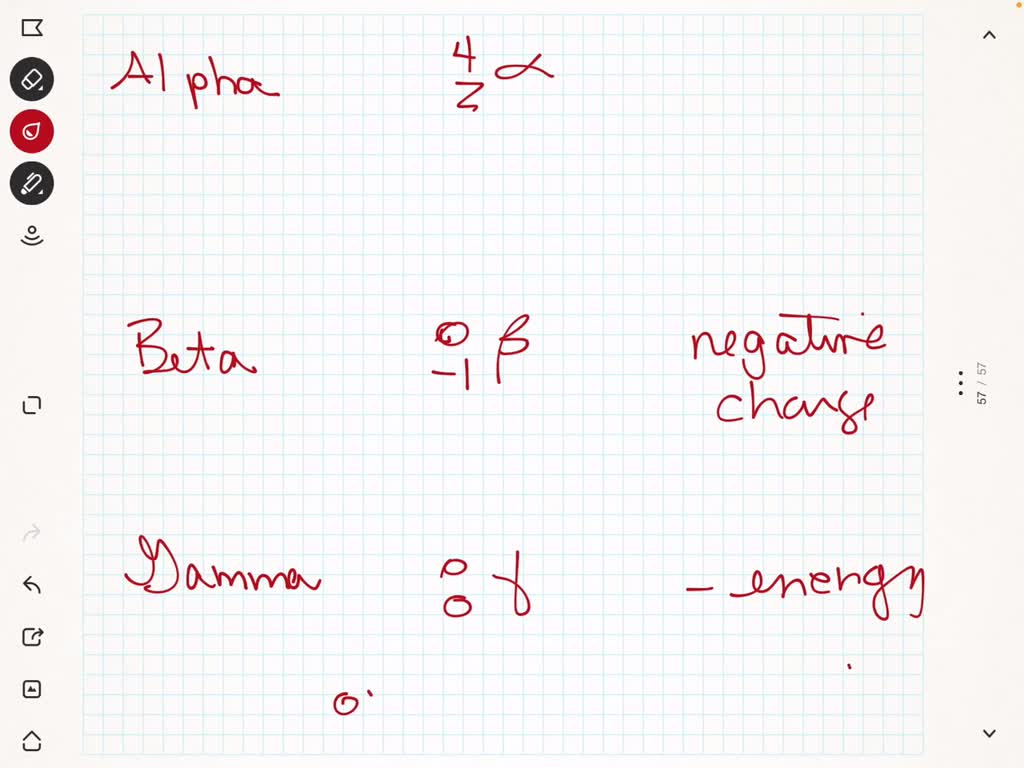 Alpha 4 2 α
Beta 0 -1 β negative
charge
Gamma 0 0 γ - energy
57 / 57